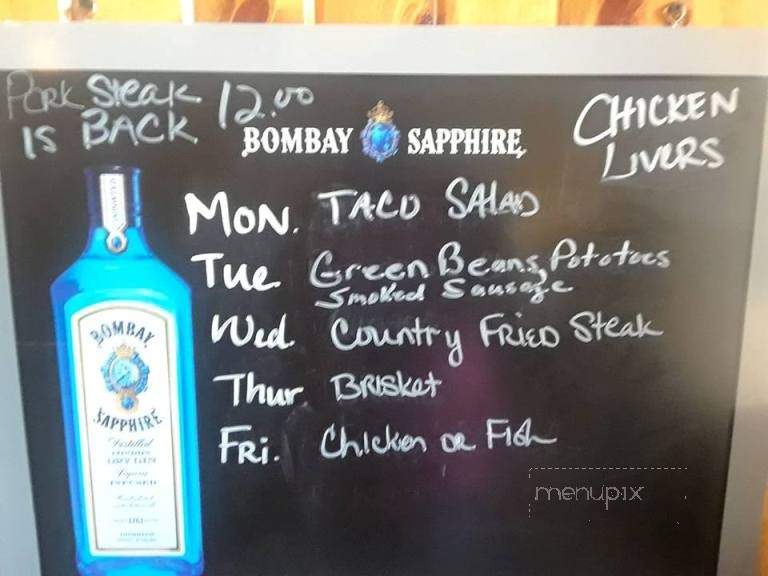 Pork Steak 12.00
IS BACK
BOMBAY SAPPHIRE
CHICKEN
LIVERS
MON. TACO SALAD
Tue Green Beans, Pototoes
Smoked Sausage
Wed. Country FRIED Steak
Thur BRISket
FRi. Chicken or Fish
BOMBAY
SAPPHIRE
Distilled
LONDON
DRY GIN
1761
menupix